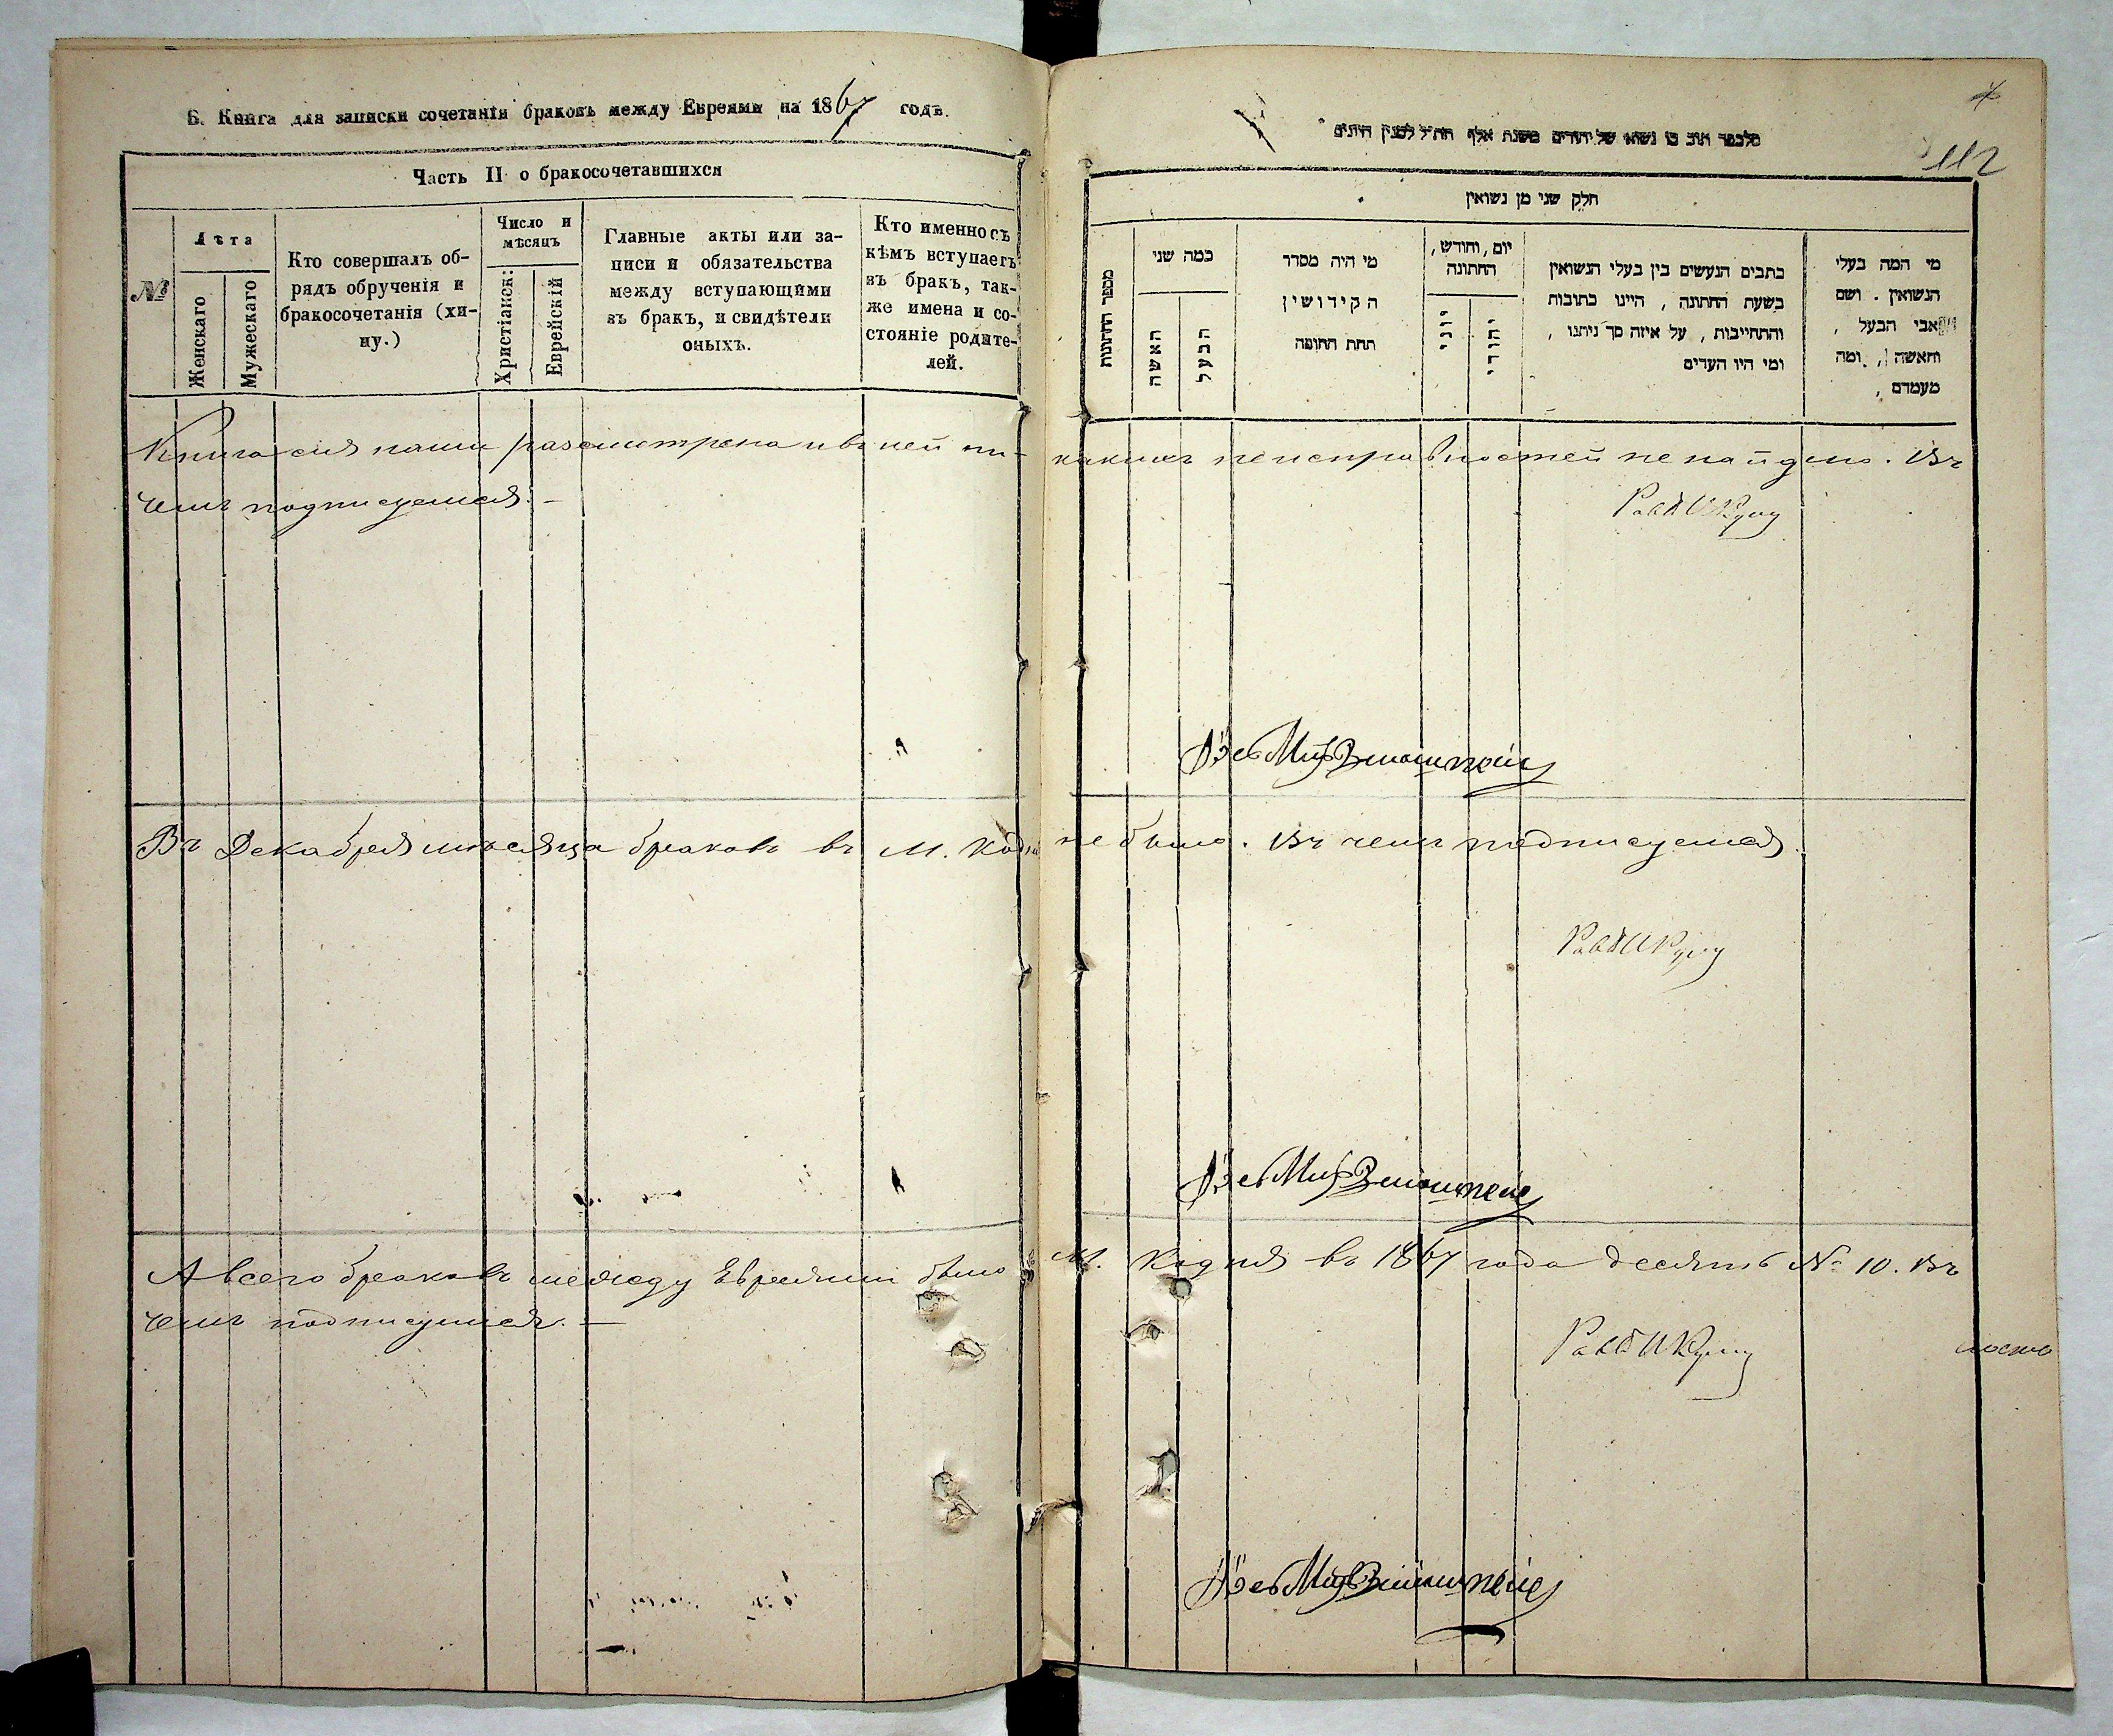 Б. Книга для записки сочетанія браковъ между Евреями на 1867 годъ.
Часть II о бракосочетавшихся
№
Лѣта
Женскаго
Мужескаго
Кто совершалъ об-
рядъ обрученія и
бракосочетанія (хи-
пу.)
Число и
мѣсяцъ
Христіанск:
Еврейскій
Главные акты или за-
писи и обязательства
между вступающими
въ бракъ, и свидѣтели
оныхъ.
Кто именно съ
кѣмъ вступаетъ
въ бракъ, так-
же имена и со-
стояніе родите-
лей.
112
חלק שני מן נשואין
מספר החתונות
כמה שני
האשה
הבעל
מי היה מסדר
הקידושין
תחת החופה
יום, וחודש,
החתונה
יוני
יהודי
כתבים הנעשים בין בעלי הנשואין
בשעת החתונה , היינו כתובות
והתחייבות , על איזה סך ניתנו ,
ומי היו העדים
מי המה בעלי
הנשואין . ושם
אבי הבעל ,
והאשה , ומה
מעמדם ,
Книга сія нами разсмотрена и въ ней ни- какихъ неисправностей не найдено. Въ
чемъ подписуемся. –
Въ Декабря мѣсяца браковъ въ М. Кодня не было. Въ чемъ подписуемся.
А всего браковъ между Евреями было въ М. Кодня въ 1867 года десять № 10. Въ
чемъ подписуемся. –